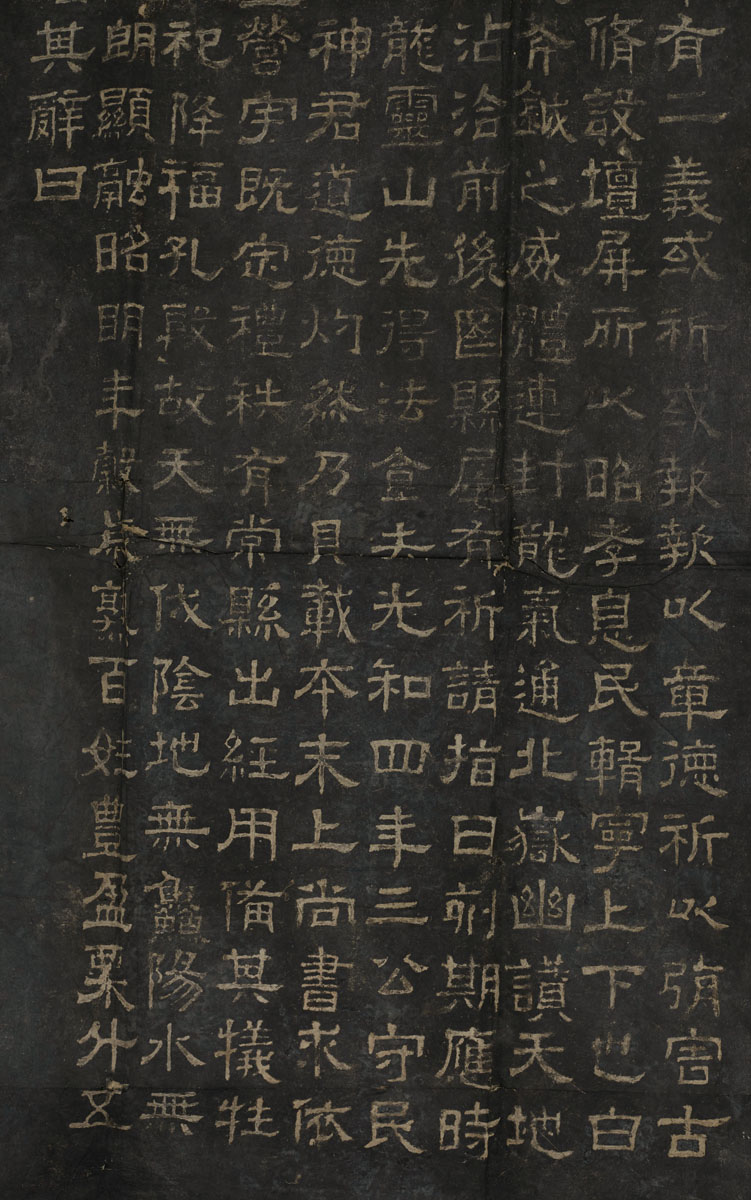 有二義或祈或報報以章德祈以弭害古
脩設壇屏所以昭孝息民輯寧上下也白
斧鉞之威體連封龍氣通北嶽幽讚天地
沾洽前後國縣屢有祈請指日刻期應時
龍靈山先得法食去光和四年三公守民
神君道德灼然乃具載本末上尚書求依
營宇既定禮秩有常縣出經用備其犧牲
祀降福孔殷故天無伏陰地無鱻陽水無
朗顯融昭明年穀歲熟百姓豐盈粟升五
其辭曰